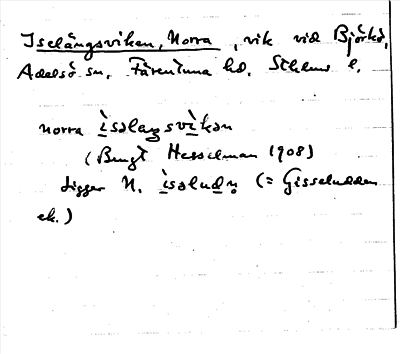 Iselängsviken, Norra, vik vid Björkö,
Adelsö sn, Färentuna hd, Sthlms l.
norra ìsəlaŋsvìkən
(Bengt Hesselman 1908)
ligger N. ìsəludn̥ (= Gisseludden
ek.)